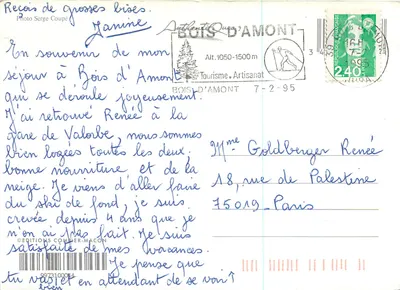 Reçois de grosses bises.
Janine
Photo Serge Coupé
En souvenir de mon
séjour à Bois d'Amont
qui se déroule joyeusement.
J'ai retrouvé Renée à la
gare de Valorbe, nous sommes
bien logées toutes les deux.
bonne nourriture et de la
neige. Je viens d'aller faire
du ski de fond, je suis
crevée depuis 4 ans que je
n'en ai pas fait. Je suis
satisfaite de mes vacances.
Je pense que
tu vas
bien
et en attendant de se voir
©EDITIONS COMBIER MACON
BOIS D'AMONT
Alt. 1050-1500 m
Tourisme - Artisanat
BOIS D'AMONT 7-2-95
39
2,40
Mme Goldberger Renée
18, rue de Palestine
75019 - Paris